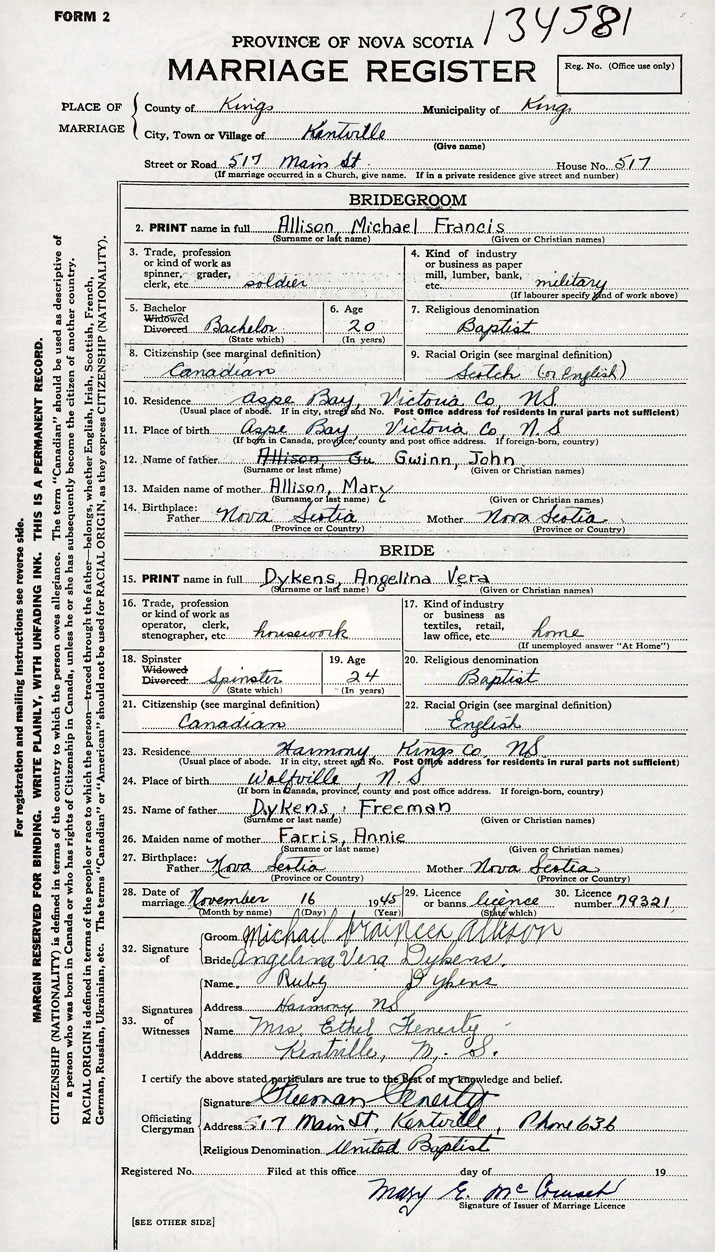 FORM 2
134581
PROVINCE OF NOVA SCOTIA
MARRIAGE REGISTER
Reg. No. (Office use only)
PLACE OF MARRIAGE
County of Kings Municipality of Kings
City, Town or Village of Kentville
(Give name)
Street or Road 517 Main St. House No. 517
(If marriage occurred in a Church, give name. If in a private residence give street and number)
BRIDEGROOM
2. PRINT name in full Allison, Michael Francis
(Surname or last name) (Given or Christian names)
3. Trade, profession or kind of work as spinner, grader, clerk, etc. soldier
4. Kind of industry or business as paper mill, lumber, bank, etc. military
(If labourer specify kind of work above)
5. Bachelor Widowed Divorced Bachelor
(State which)
6. Age 20
(In years)
7. Religious denomination Baptist
8. Citizenship (see marginal definition) Canadian
9. Racial Origin (see marginal definition) Scotch (or English)
10. Residence Aspe Bay, Victoria Co, NS
(Usual place of abode. If in city, street and No. Post Office address for residents in rural parts not sufficient)
11. Place of birth Aspe Bay Victoria Co, N.S
(If born in Canada, province, county and post office address. If foreign-born, country)
12. Name of father Allison, Gu Gwinn, John
(Surname or last name) (Given or Christian names)
13. Maiden name of mother Allison, Mary
(Surname or last name) (Given or Christian names)
14. Birthplace: Father Nova Scotia Mother Nova Scotia
(Province or Country) (Province or Country)
BRIDE
15. PRINT name in full Dykens, Angelina Vera
(Surname or last name) (Given or Christian names)
16. Trade, profession or kind of work as operator, clerk, stenographer, etc. housework
17. Kind of industry or business as textiles, retail, law office, etc. home
(If unemployed answer "At Home")
18. Spinster Widowed Divorced Spinster
(State which)
19. Age 24
(In years)
20. Religious denomination Baptist
21. Citizenship (see marginal definition) Canadian
22. Racial Origin (see marginal definition) English
23. Residence Harmony Kings Co NS
(Usual place of abode. If in city, street and No. Post Office address for residents in rural parts not sufficient)
24. Place of birth Wolfville, N.S
(If born in Canada, province, county and post office address. If foreign-born, country)
25. Name of father Dykens, Freeman
(Surname or last name) (Given or Christian names)
26. Maiden name of mother Farris, Annie
(Surname or last name) (Given or Christian names)
27. Birthplace: Father Nova Scotia Mother Nova Scotia
(Province or Country) (Province or Country)
28. Date of marriage November 16 1945
(Month by name) (Day) (Year)
29. Licence or banns licence
(State which)
30. Licence number 79321
32. Signature of
Groom Michael Francis Allison
Bride Angelina Vera Dykens.
33. Signatures of Witnesses
Name Ruby Dykens
Address Harmony NS
Name Mrs. Ethel Fenerty
Address Kentville, N. S.
I certify the above stated particulars are true to the best of my knowledge and belief.
Officiating Clergyman
Signature Freeman Fenerty
Address 517 Main St, Kentville, Phone 636
Religious Denomination United Baptist
Registered No. Filed at this office day of 19
Mary E.
Signature of Issuer of Marriage Licence
[SEE OTHER SIDE]
For registration and mailing instructions see reverse side.
MARGIN RESERVED FOR BINDING. WRITE PLAINLY, WITH UNFADING INK. THIS IS A PERMANENT RECORD.
CITIZENSHIP (NATIONALITY) is defined in terms of the country to which the person owes allegiance. The term "Canadian" should be used as descriptive of
a person who was born in Canada or who has rights of Citizenship in Canada, unless he or she has subsequently become the citizen of another country.
RACIAL ORIGIN is defined in terms of the people or race to which the person—traced through the father—belongs, whether English, Irish, Scottish, French,
German, Russian, Ukrainian, etc. The terms "Canadian" or "American" should not be used for RACIAL ORIGIN, as they express CITIZENSHIP (NATIONALITY).